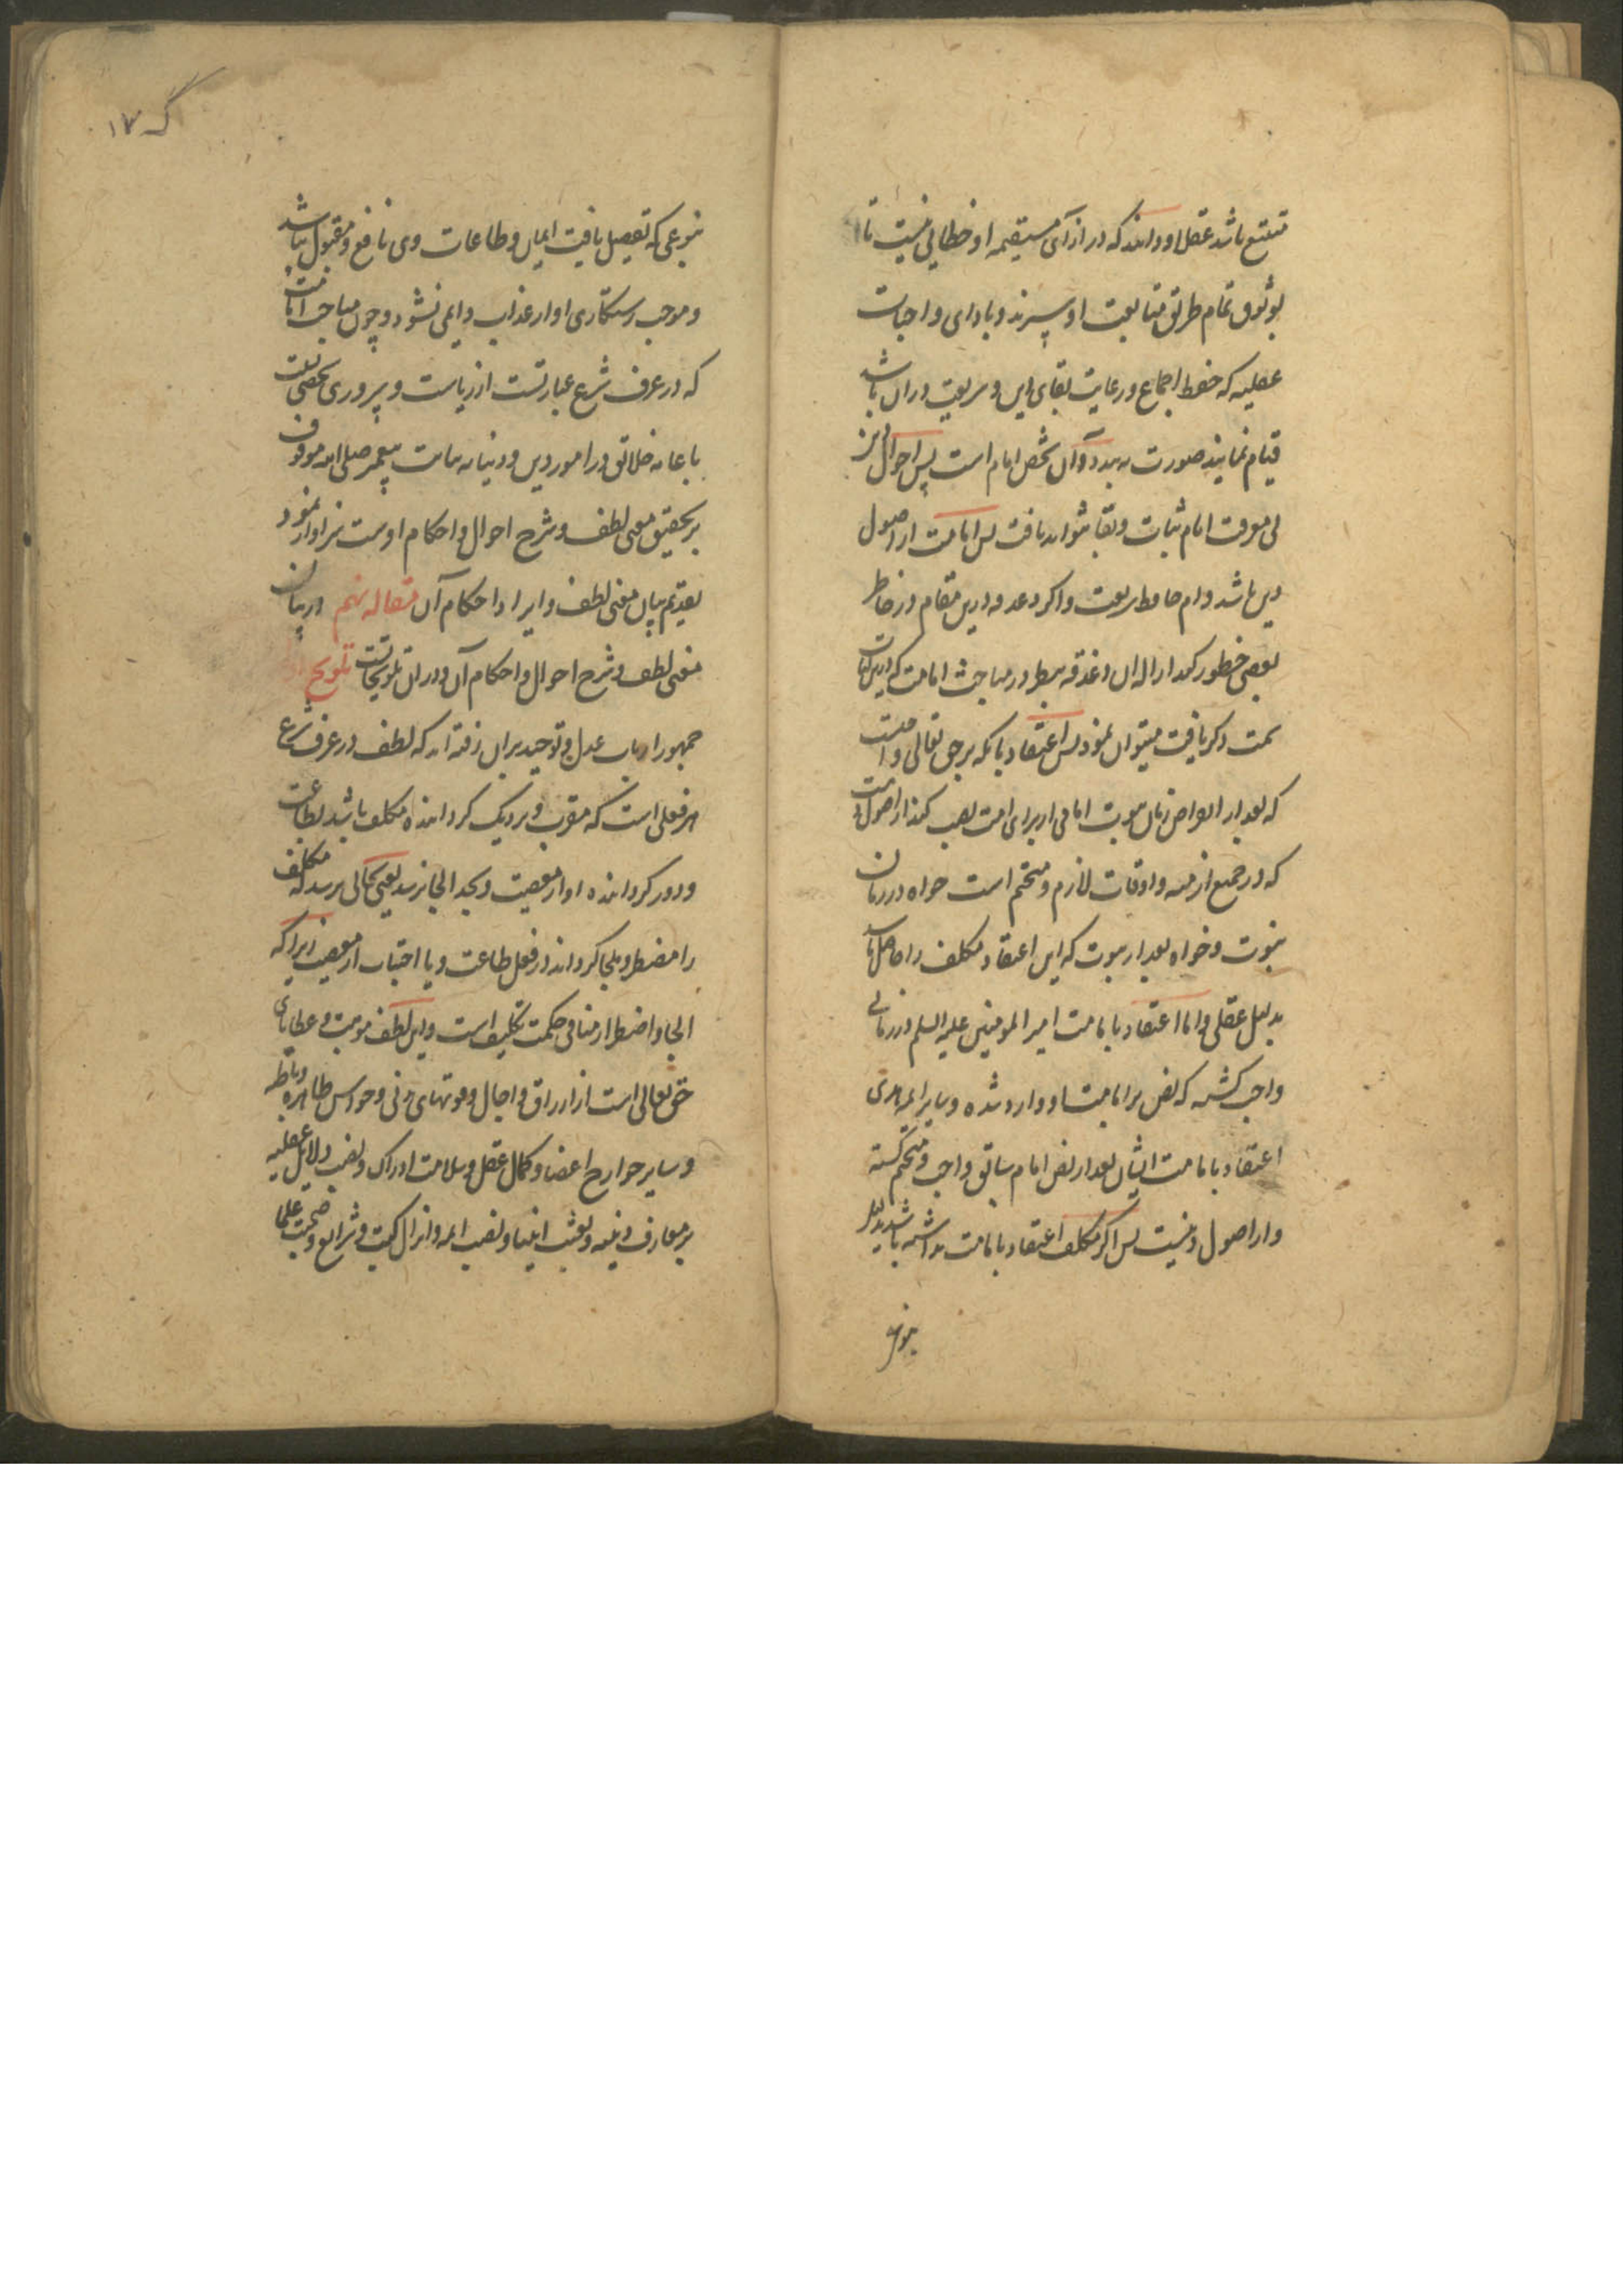 ممتنع باشد عقلا و دانند که در ازآی مستقیمه او خطایی نیست تا
بوثوق تمام طریق متابعت او سپرند و با دای واجبات
عقلیه که حفظ اجماع و رعایت بقای این و شریعت در ان باشد
قیام نمایند صورت نه بندد و آن شخص امام است پس احوال دین
بی معرفت امام ثبات و بقا نتواند یافت پس امامت از اصول
دین باشد و ام حافظ شریعت و اکر دغدغه درین مقام در خاطر
بعضی خطور کند ازاله ان دغدغه بنظر در مباحث امامت که درین کتاب
سمت ذکر یافت میتوان نمود پس اعتقاد بانکه بر حق تعالی واجبست
که بعد از انقراض زمان نبوت امامی از برای امت نصب کند از اصولست
که در جمیع ازمنه و اوقات لازم و متحتم است خواه در زمان
نبوت و خواه بعد از نبوت که این اعتقاد مکلف را حاصل باشد
بدلیل عقلی و اما اعتقاد بامامت امیر المومنین علیه السلم در زمانی
واجب کشته که نص بر امامت او وارد شده و سایر ایمه هدی
اعتقاد بامامت ایشان بعد از نص امام سابق واجب و متحتم کشته
و از اصول دینست پس اکر مکلف اعتقاد بامامت نداشته باشد بدلیل
بنوعی
که ۱۷
بنوعی که تفصیل یافت ایمان و طاعات وی نافع و مقبول نباشد
و موجب رستکاری او از عذاب دایمی نشود و چون مباحث امامت
که در عرف شرع عبارتست از ریاست و سروری شخصی
با عامه خلائق در امور دین و دنیا به نیابت پیغمبر صلی الله موقوف
بر تحقیق معنی لطف و شرح احوال و احکام اوست سزاوار نمود
تقدیم بیان معنی لطف و ایراد احکام آن مقاله نهم در بیان
معنی لطف و شرح احوال و احکام آن و در ان تلویحاتست تلویح اول
جمهور ارباب عدل و توحید بران رفته اند که لطف در عرف شرع
هر فعلی است که مقرب و نزدیک کرداننده مکلف باشد بطاعت
و دور کرداننده او از معصیت و بحد الجا نرسد یعنی بحالی نرسد که مکلف
را مضطر و ملجا کرداند در فعل طاعت و یا اجتناب از معصیت زیرا که
الجا و اضطرار منافی حکمت تکلیف است و این لطف موهبت و عطایای
حق تعالی است از ارزاق و اجال و قوتهای بدنی و حواس ظاهره و باطنه
و سایر جوارح اعضا و کمال عقل و سلامت ادراک و نصب دلایل عقلیه
بر معارف دینیه و بعثت انبیا و نصب ایمه و انزال کتب و شرایع و صحبت علما